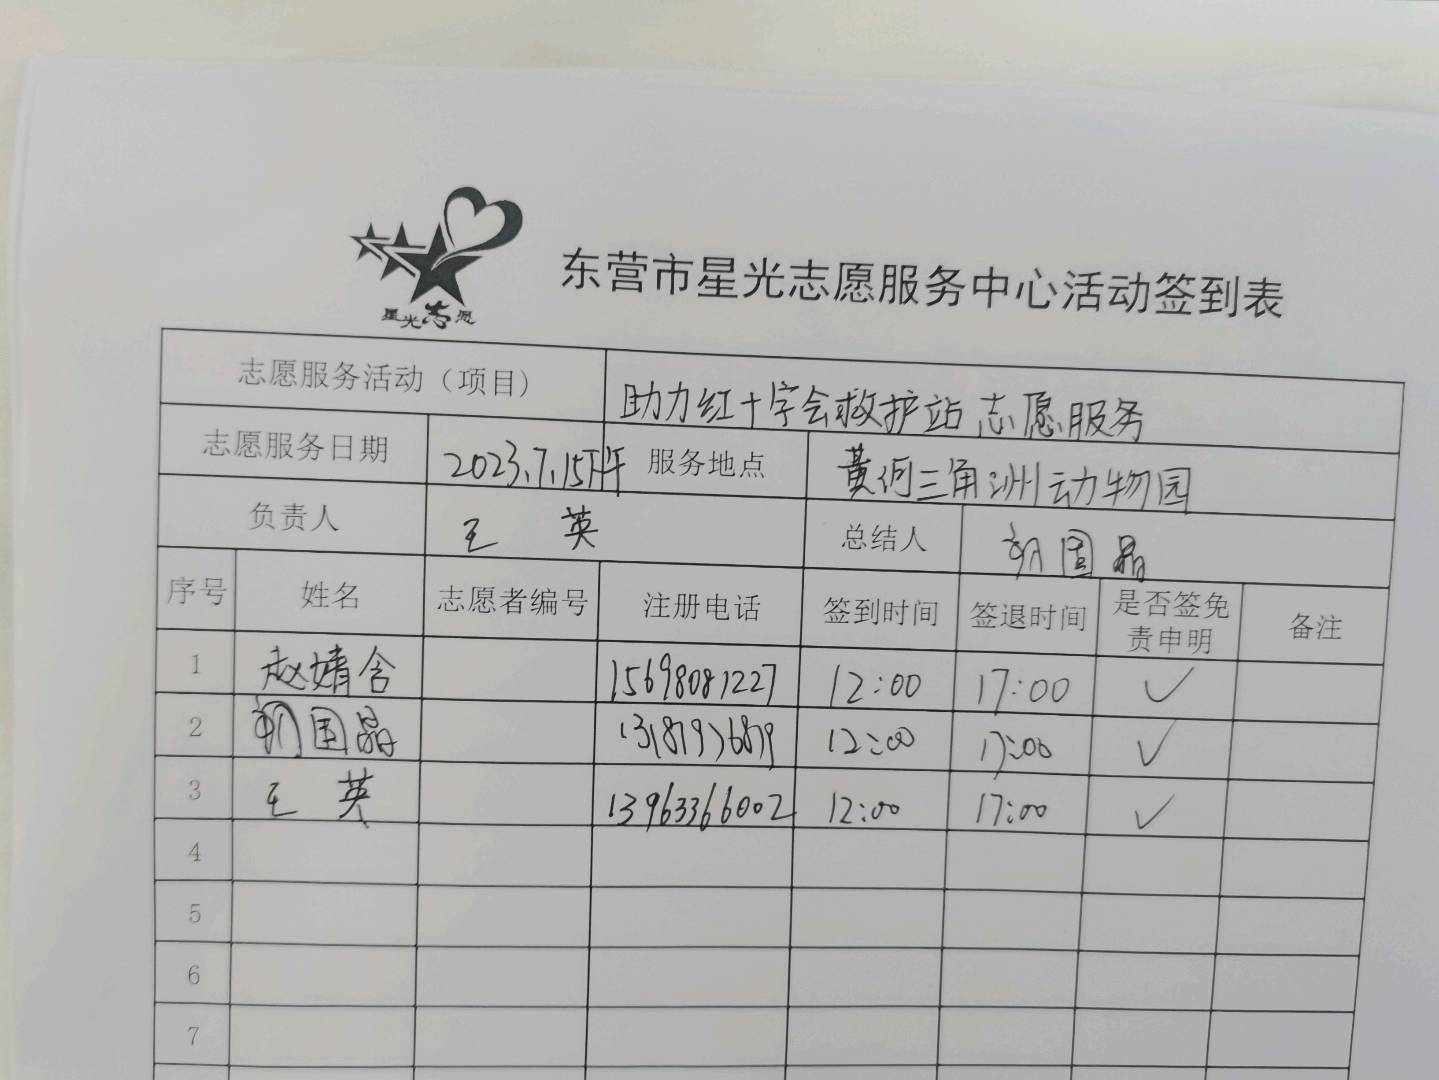 星光志愿
东营市星光志愿服务中心活动签到表
志愿服务活动（项目） 助力红十字会救护站志愿服务
志愿服务日期 2023.7.15下午 服务地点 黄河三角洲动物园
负责人 王英 总结人 国晶
序号 姓名 志愿者编号 注册电话 签到时间 签退时间 是否签免责申明 备注
1 赵婧含 15698081227 12:00 17:00 ✓
2 国晶 12:00 17:00 ✓
3 王英 13963366002 12:00 17:00 ✓
4
5
6
7